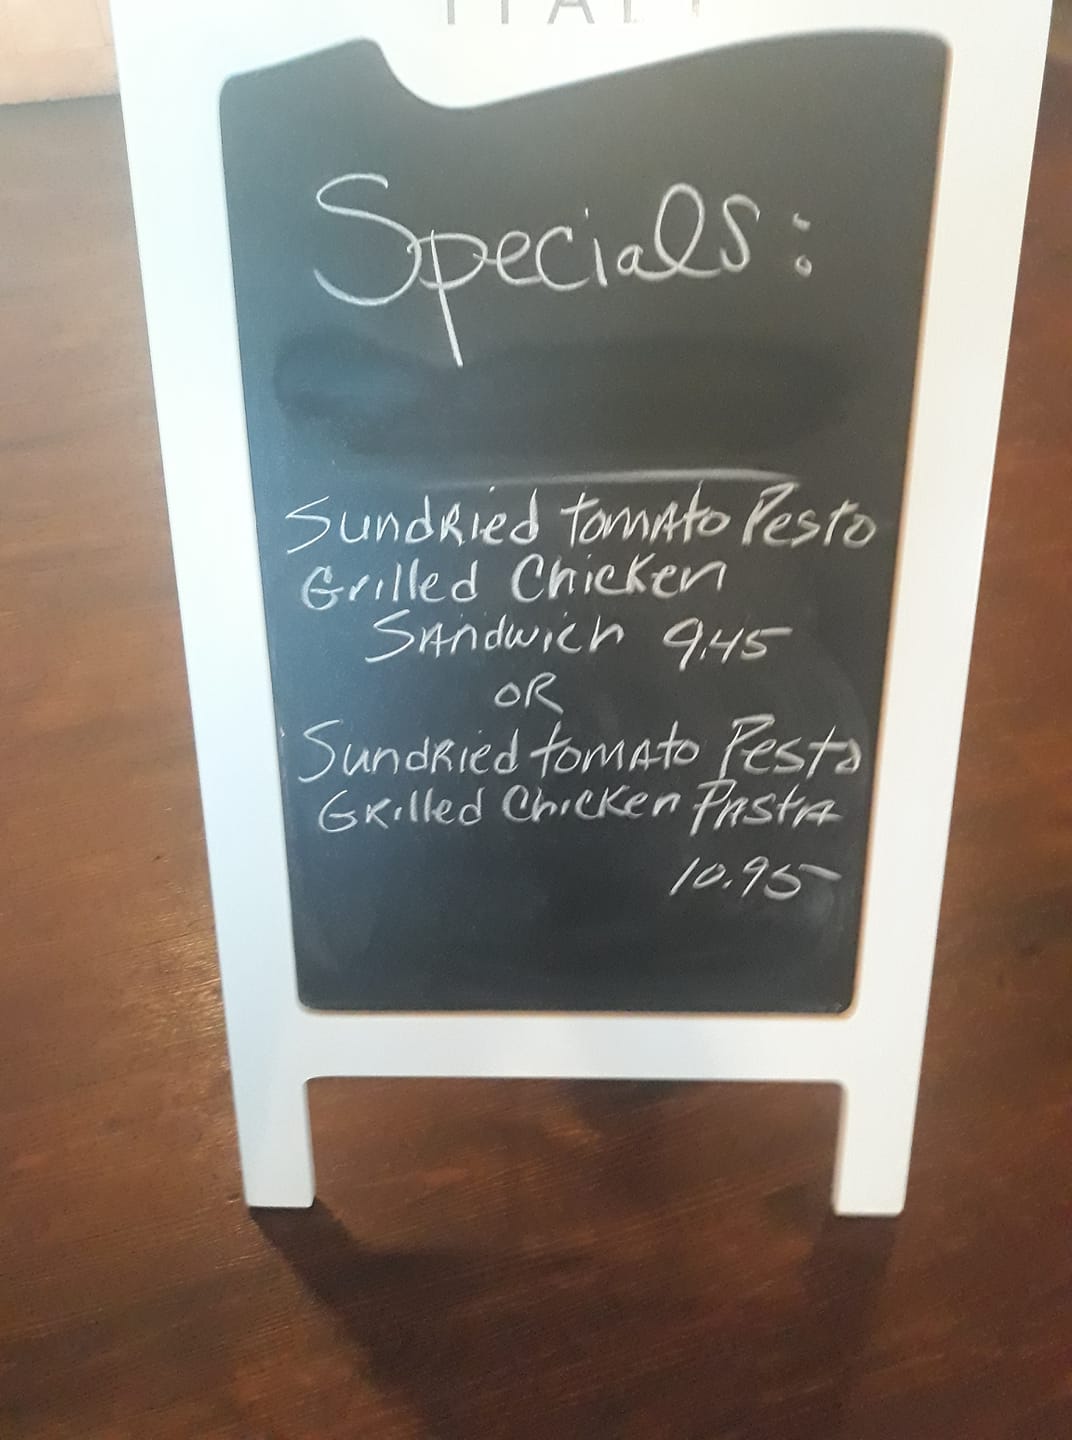 ITALY
Specials:
Sundried tomato Pesto
Grilled Chicken
Sandwich 9.45
OR
Sundried tomato Pesto
Grilled Chicken Pasta
10.95